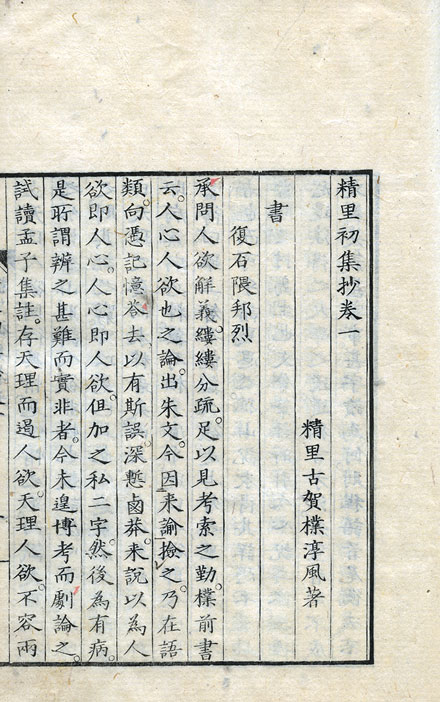 精里初集抄卷一
精里古賀樸淳風著
書
復石隈邦烈
承問人欲解義。縷縷分疏。足以見考索之勤。樸前書
云。人心人欲也之論。出朱文。今因来諭撿之。乃在語
類。向憑記憶答去。以有斯誤。深慙鹵莽。来說以為人
欲即人心。人心即人欲。但加之私二字。然後為有病。
是所謂辨之甚難而實非者。今未遑博考而劇論之。
試讀孟子集註。存天理而遏人欲。天理人欲。不容兩